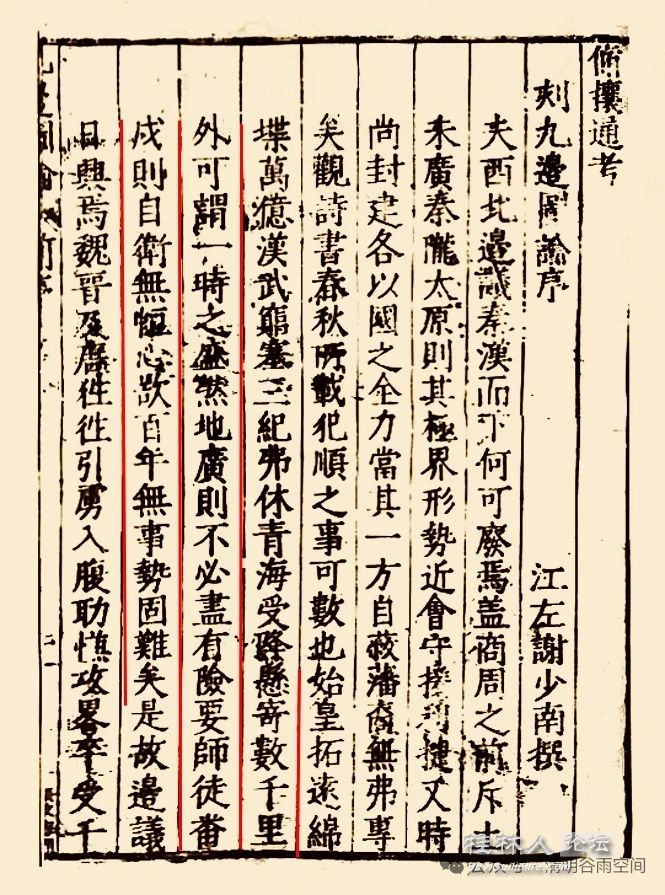 脩攘通考
刻九邊圖論序
江左謝少南撰
夫西北邊議秦漢而下何可廢焉盖商周之前斥土
未廣秦隴太原則其極界形勢近會守捷又時
尚封建各以國之全力當其一方自救藩裔無弗專
矣觀詩書春秋所載犯順之事可數也始皇拓遠綿
堞萬億漢武臨塞三紀弗休青海受降懸寄數千里
外可謂一時之盛然地廣則不必盡有險要師徒畨
戍則自衛無恒心欲百年無事勢固難矣是故邊議
日興焉魏晉及唐徃徃引虜入腹助憔攻畧卒受千
九邊圖論
桂林人论坛
清明谷雨空间